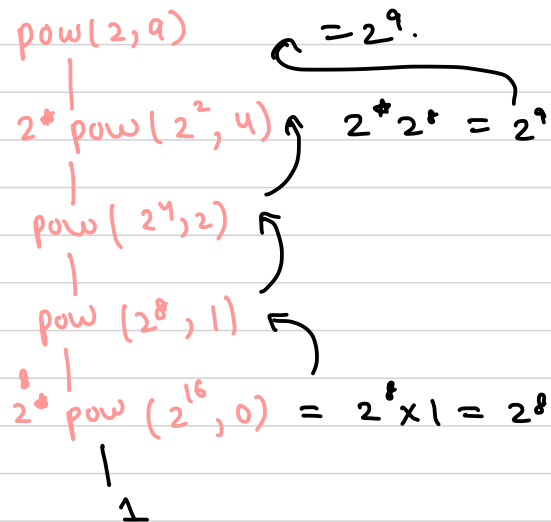 pow(2, 9) = 2⁹.
2* pow(2², 4) 2*2⁸ = 2⁹
pow(2⁴, 2)
pow(2⁸, 1)
2⁸* pow(2¹⁶, 0) = 2⁸×1 = 2⁸
1